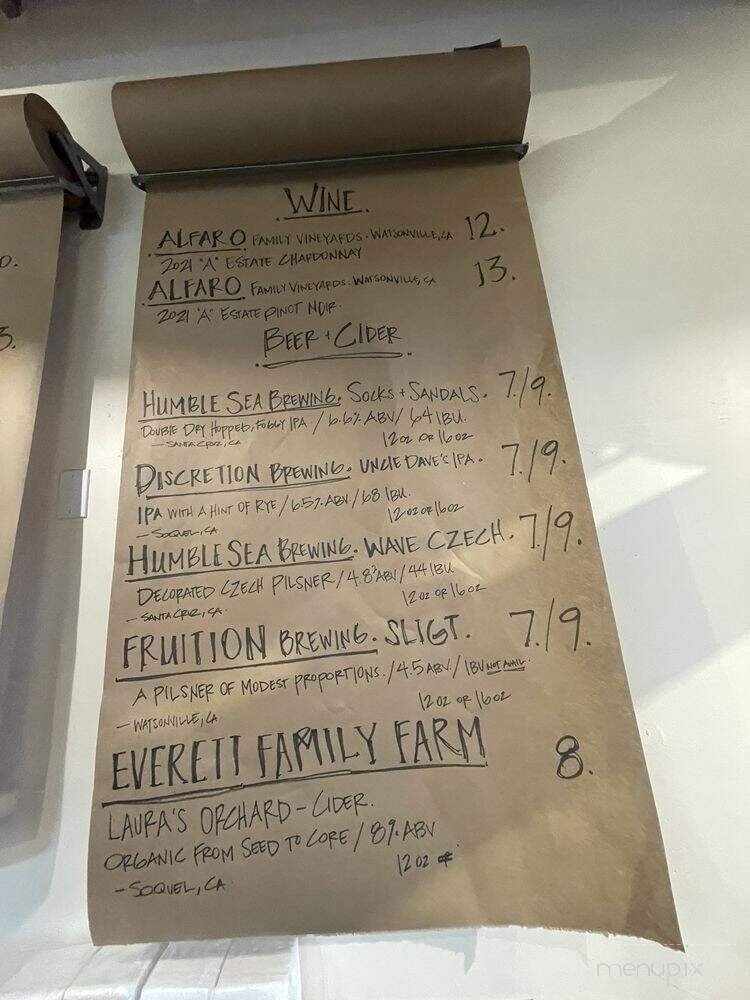 WINE
ALFARO FAMILY VINEYARDS. WATSONVILLE, CA 12.
2021 "A" ESTATE CHARDONNAY
ALFARO FAMILY VINEYARDS. WATSONVILLE, CA 13.
2021 "A" ESTATE PINOT NOIR.
BEER + CIDER
HUMBLE SEA BREWING. SOCKS + SANDALS. 7./9.
DOUBLE DRY HOPPED, FOGGY IPA / 6.6% ABV / 64 IBU.
— SANTA CRUZ, CA 12 OZ OR 16 OZ
DISCRETION BREWING. UNCLE DAVE'S IPA. 7./9.
IPA WITH A HINT OF RYE / 6.5% ABV / 68 IBU.
— SOQUEL, CA 12 OZ OR 16 OZ
HUMBLE SEA BREWING. WAVE CZECH. 7./9.
DECORATED CZECH PILSNER / 4.8% ABV / 44 IBU
— SANTA CRUZ, CA. 12 OZ OR 16 OZ
FRUITION BREWING. SLIGT. 7./9.
A PILSNER OF MODEST PROPORTIONS. / 4.5 ABV. / IBU NOT AVAIL.
— WATSONVILLE, CA 12 OZ OR 16 OZ
EVERETT FAMILY FARM 8.
LAURA'S ORCHARD - CIDER.
ORGANIC FROM SEED TO CORE / 8% ABV
— SOQUEL, CA 12 OZ
0.
3.
menupix